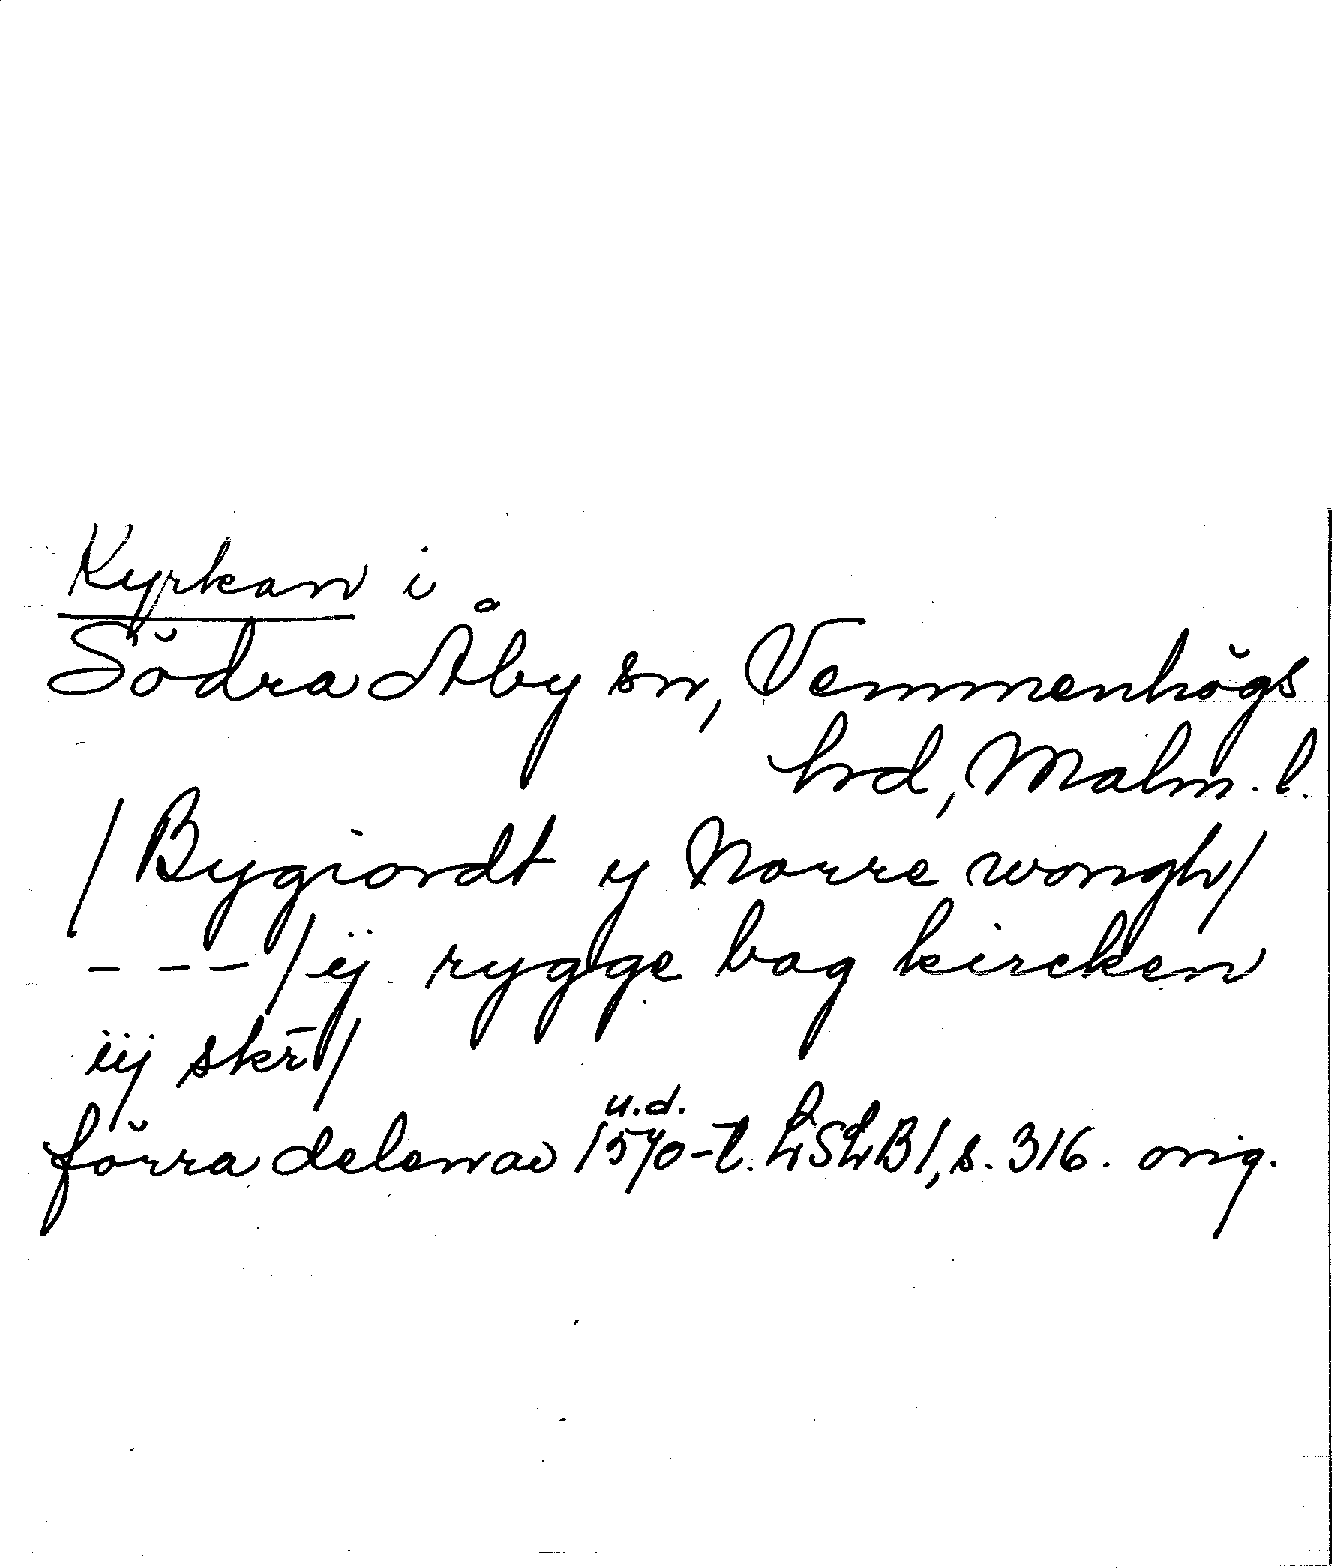 Kyrkan i
Södra Åby sn, Vemmenhögs
hrd, Malm. l.
/Bygiordt y Norre wongh/
- - - /ij rygge bag kircken
iij skr̄/
förra delen av 1570-t. LSLB1, s. 316. orig.
u.d.